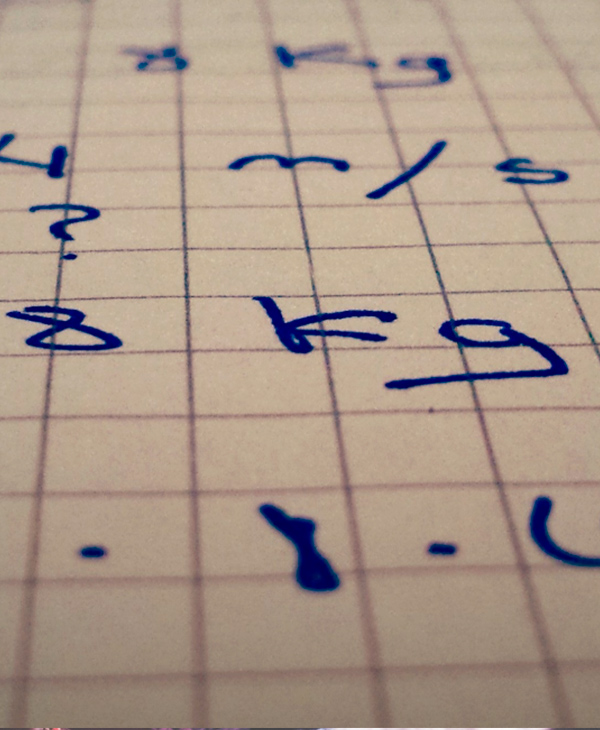 8 Kg
4 m/s
?
8 Kg
· γ ·